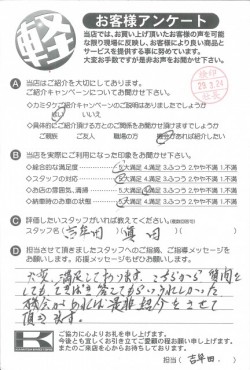 軽
お客様アンケート
当店では、お買い上げ頂いたお客様の声を可能
な限り現場に反映し、お客様により良い商品と
サービスを提供する事に努めています。
大変お手数ですが是非お声をお聞かせ下さい。
A 当店はご紹介を大切にしております。
ご紹介キャンペーンについてお聞かせ下さい。
◇カミタケご紹介キャンペーンのご説明はありましたでしょうか
はい いいえ
◇具体的にご紹介頂ける方とのご関係をお聞かせ頂けますでしょうか
ご親族 ご友人 職場の方 機会があれば紹介したい
B 当店を実際にご利用になった印象をお聞かせ下さい。
◇総合的な満足度 5.大満足 4.満足 3.ふつう 2.やや不満 1.不満
◇スタッフの対応 5.大満足 4.満足 3.ふつう 2.やや不満 1.不満
◇お店の雰囲気、清掃 5.大満足 4.満足 3.ふつう 2.やや不満 1.不満
◇納車時のお車の状態 5.大満足 4.満足 3.ふつう 2.やや不満 1.不満
C 評価したいスタッフがいれば教えてください。
スタッフ名( 吉年田 )( 真田 )
D 担当させて頂きましたスタッフへのご指摘、ご指導メッセージを
お願いします。応援メッセージもぜひお願いします。
大変、満足しております。こちらから質問を
しても てきぱき 答えてもらい うれしかった
機会があれば是非紹介をさせて
頂きます。
K
ご協力に心よりお礼を申し上げます。
今後とも宜しくお引き立てご愛顧の程お願い申し上げます。
またのご来店を心からお待ちしております。
担当( 吉年田 )